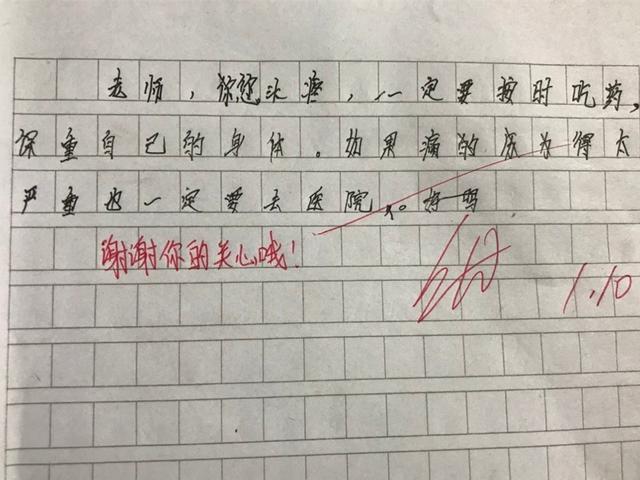 老师，你还头疼，一定要按时吃药，
保重自己的身体。如果痛的得太
严重也一定要去医院。好吗
谢谢你的关心哦！
1.10